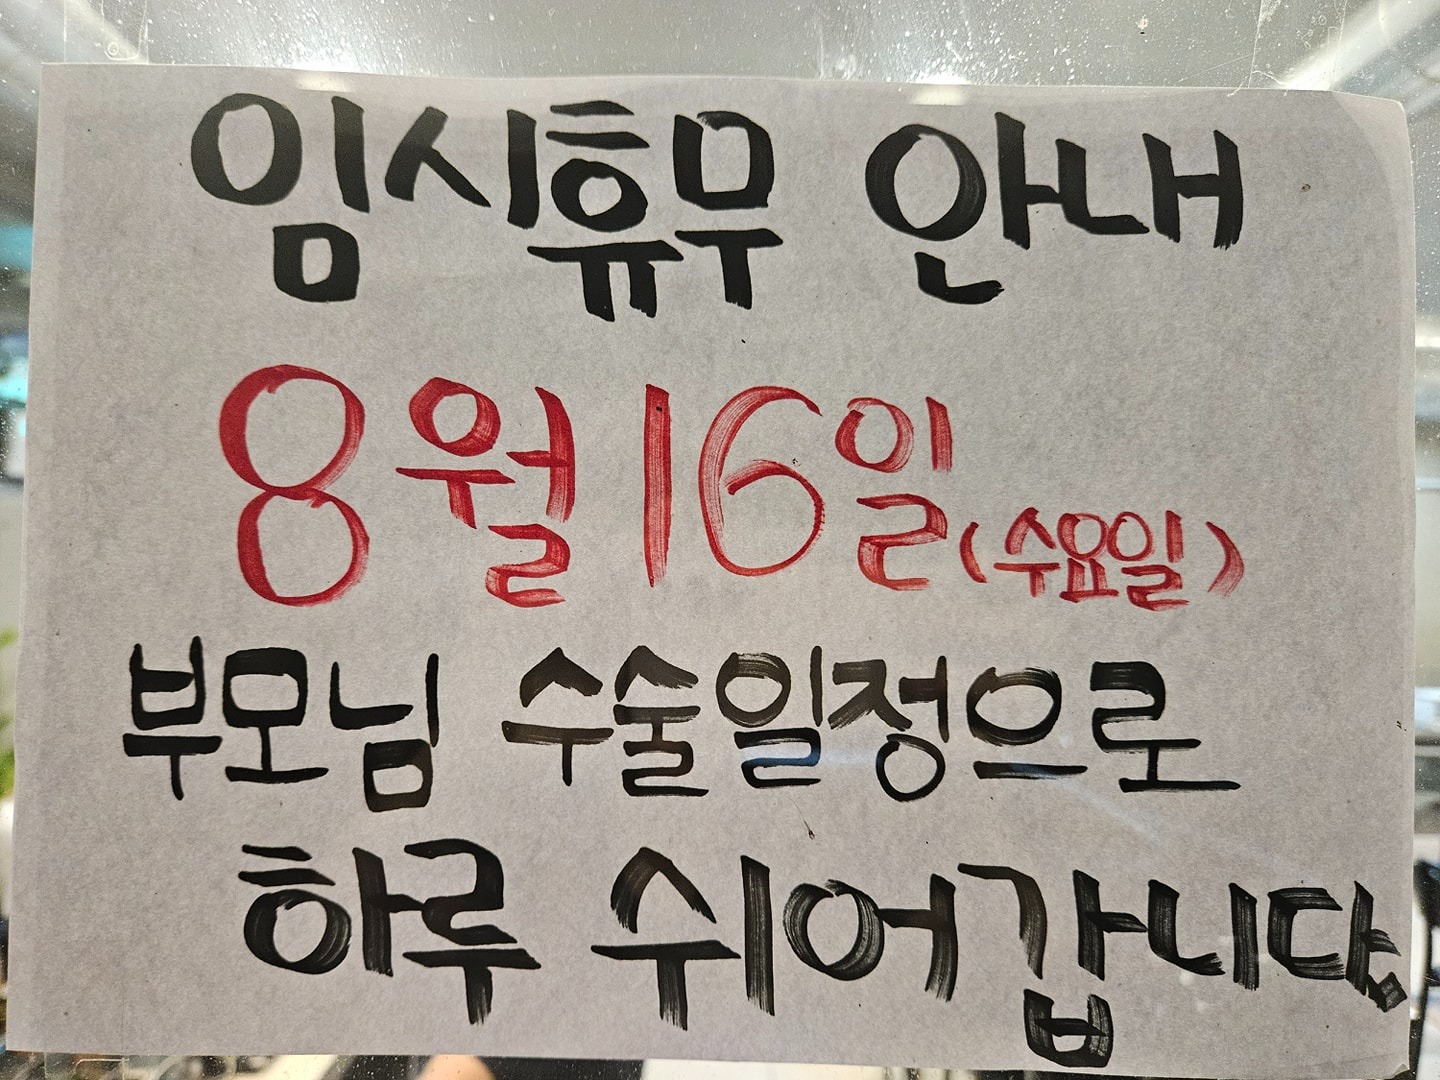 임시휴무 안내
8월 16일(수요일)
부모님 수술일정으로
하루 쉬어갑니다.